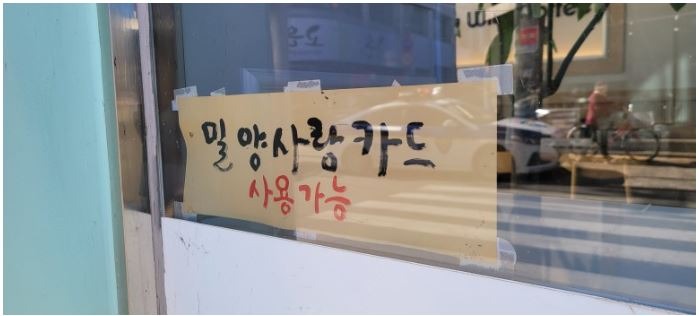 밀양사랑카드
사용가능